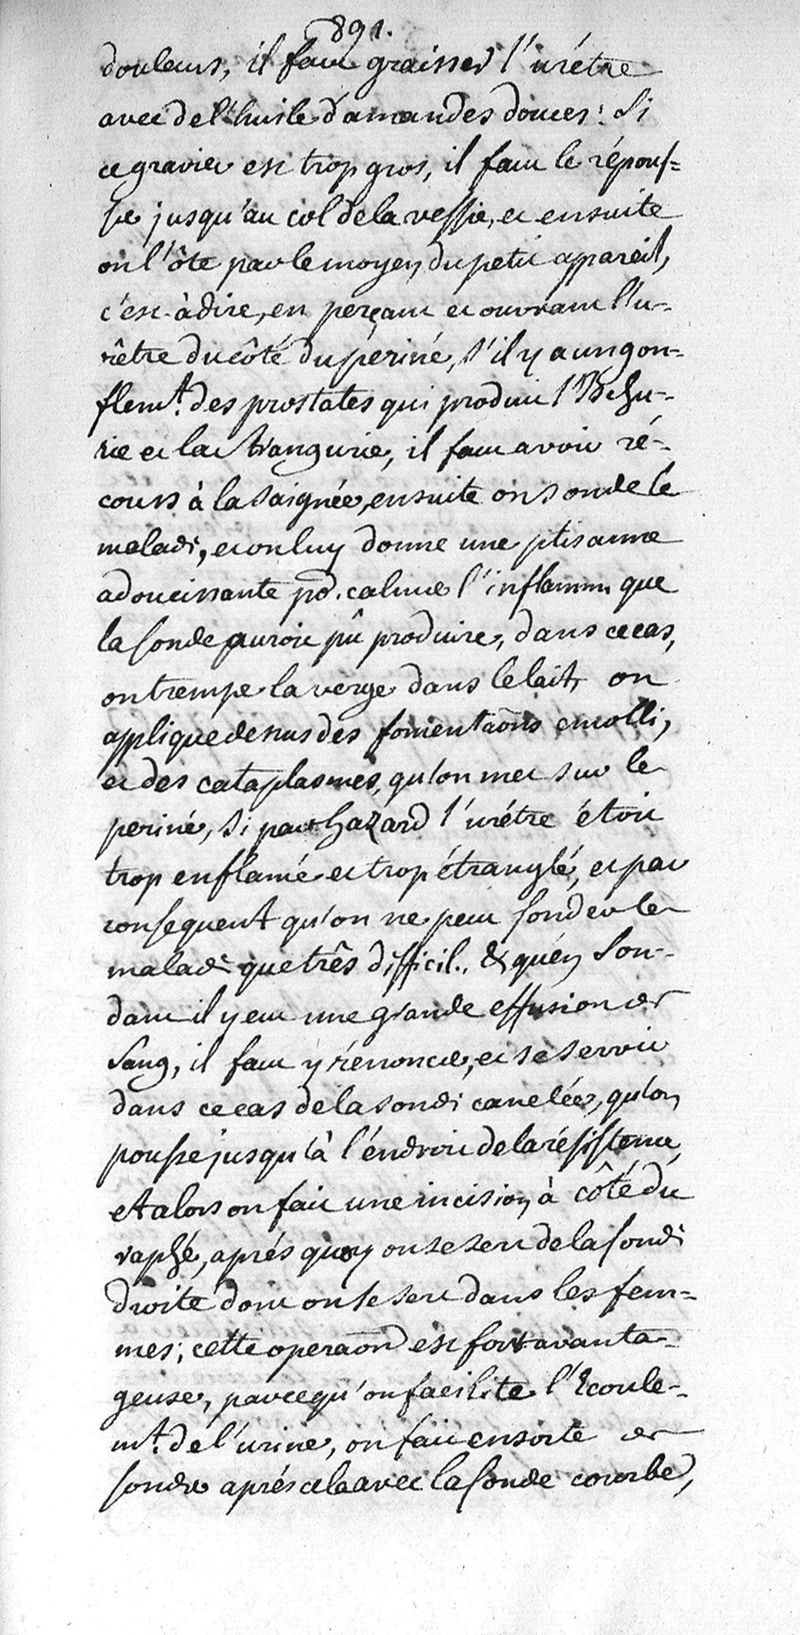 891.
douleurs, il faut graisser l'urétre
avec de l'huile d'amandes douces: Si
ce gravier est trop gros, il faut le répous=
ser jusqu'au col de la vessie, et ensuite
on l'ôte par le moyen du petit appareil,
c'est-à dire, en perçant et ouvrant l'u-
rêtre du côté du périné, s'il y a un gon=
flemt. des prostates qui produit l'Ischu-
rie et la strangurie, il faut avoir ré-
cours à la saignée, ensuite on sonde le
malade, et on luy donne une ptisanne
adoucissante pr. calmer l'inflamm. que
la sonde auroit pû produire, dans ce cas,
on trempe la verge dans le lait, on
applique dessus des fomentaõns emolli,
et des cataplasmes, qu'on met sur le
periné, Si par hazard l'urétre étoit
trop enflamé et trop étranglé, et par
consequent qu'on ne peut sonder le
malade que três difficil., & qu'en son-
dant il y eut une grande effusion de
sang, il faut y rénoncer, et se servir
dans ce cas de la sonde canelée, qu'on
pousse jusqu'à l'éndroit de la résistence,
et alors on fait une incision à côté du
raphé, aprés quoy on se sert de la sonde
droite dont on se sert dans les fem-
mes; cette operaõn est fort avanta-
geuse, parcequ'on facilite l'Ecoule-
mt. de l'urine, on fait ensorte de
sonder aprés cela avec la sonde courbe,